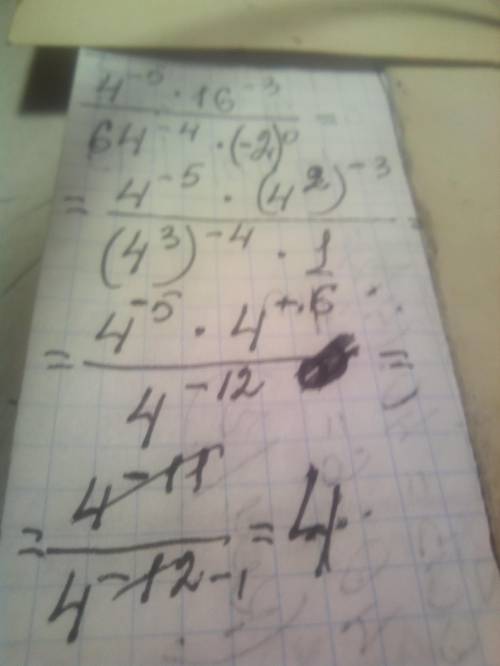 4⁻⁵ · 16⁻³
64⁻⁴ · (-2)⁰ =
= 4⁻⁵ · (4²)⁻³
(4³)⁻⁴ · 1
= 4⁻⁵ · 4⁻⁶
4⁻¹² =
= 4⁻¹¹
4⁻¹² = 4